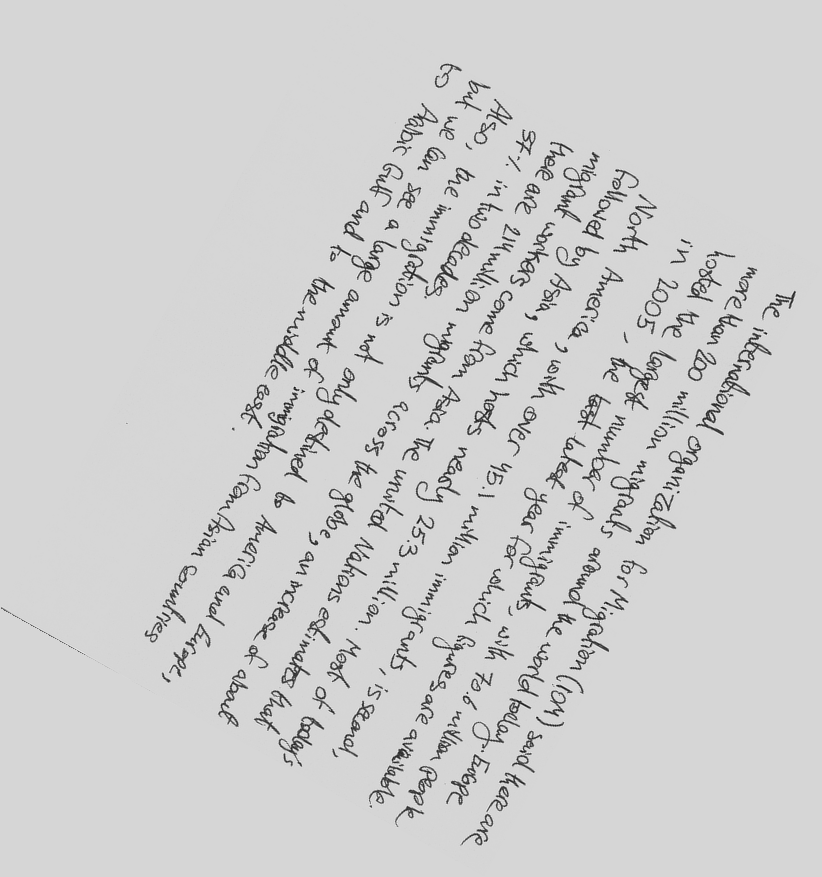 The international organization for Migration (IOM) said there are
more than 200 million migrants around the world today. Europe
hosted the largest number of immigrants, with 70.6 million people
in 2005, the latest year for which figures are available.
North America, with over 45.1 million immigrants, is second,
followed by Asia, which hosts nearly 25.3 million. Most of today's
migrant workers come from Asia. The united Nations estimates that
there are 214 million migrants across the globe, an increase of about
37% in two decades.
Also, the immigration is not only destined to America and Europe,
but we can see a large amount of immigration from Asian countries
to Arabic Gulf and to the middle east.